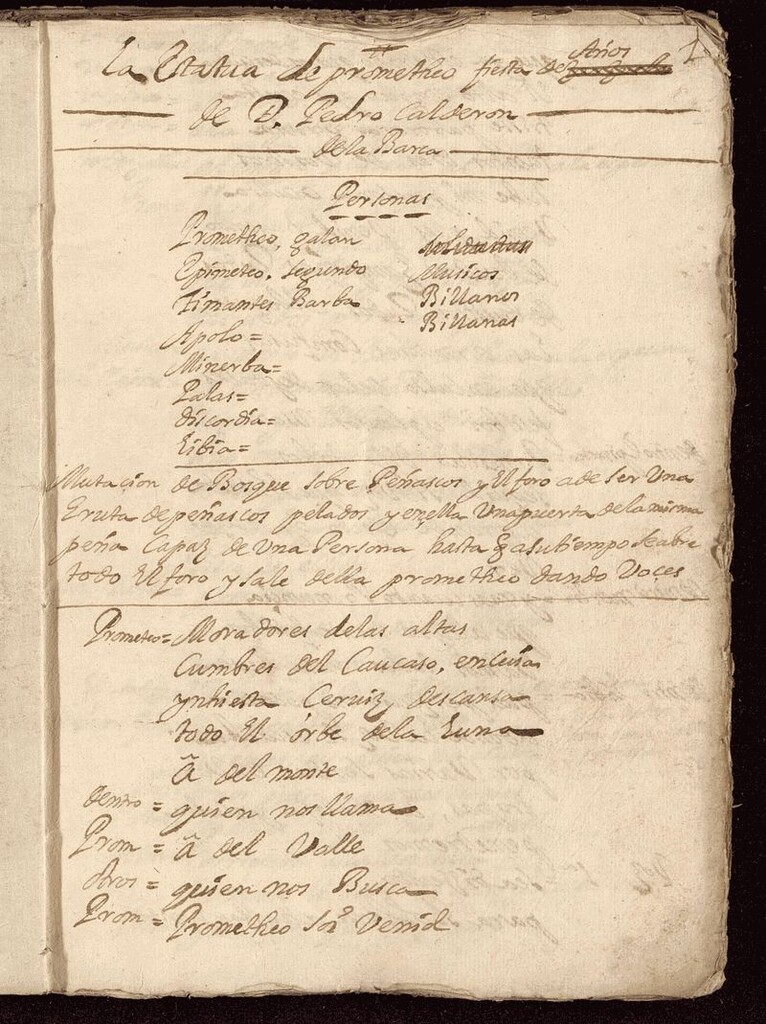 La Estatua de prometheo fiesta de Años
1
de D. Pedro Calderon
dela Barca
Personas
Prometheo, galan
Epimeteo, segundo
Timantes Barba
Apolo=
Minerba=
Palas=
discordia=
Libia=
Musicos
Billanos
Billanas
Mutaçion de Bosque sobre Peñascos y El foro ade ser Una
Gruta de peñascos pelados y enella Una puerta dela misma
peña Capaz de Una Persona hasta q asutiempo se abre
todo El foro y sale della prometheo dando Voçes
Prometeo= Moradores delas altas
Cumbres del Caucaso, en cuia
ynhiesta Ceruiz descansa
todo El órbe dela Luna
â del monte
dentro = quien nos llama
Prom = â del Valle
otros = quien nos Busca
Prom = Prometheo soi Venid